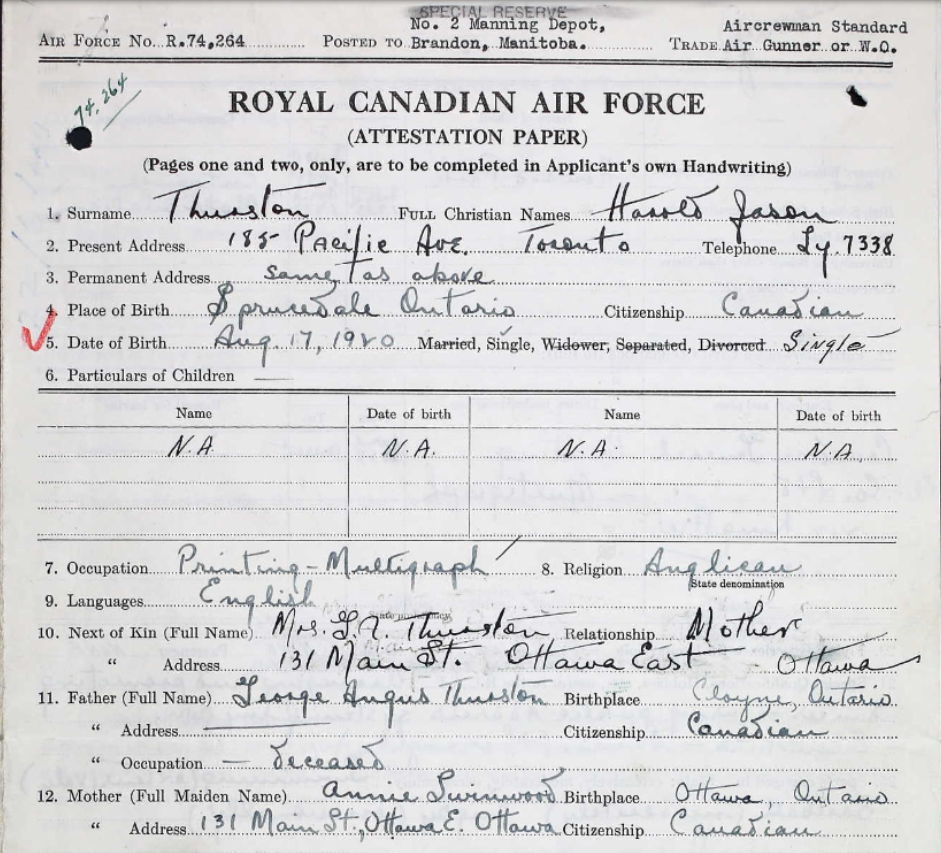 SPECIAL RESERVE
No. 2 Manning Depot, Aircrewman Standard
AIR FORCE No. R.74,264 POSTED TO Brandon, Manitoba. TRADE Air Gunner or W.O.
74,264
ROYAL CANADIAN AIR FORCE
(ATTESTATION PAPER)
(Pages one and two, only, are to be completed in Applicant's own Handwriting)
1. Surname Thurston FULL Christian Names Harold Jason
2. Present Address 185 Pacific Ave. Toronto Telephone Ly. 7338
3. Permanent Address same as above
4. Place of Birth Sprucedale Ontario Citizenship Canadian
5. Date of Birth Aug. 17, 1920 Married, Single, Widower, Separated, Divorced Single
6. Particulars of Children —
Name Date of birth Name Date of birth
N.A. N.A. N.A. N.A.
7. Occupation Printing - Multigraph 8. Religion Anglican
State denomination
9. Languages English
10. Next of Kin (Full Name) Mrs. G. A. Thurston Relationship Mother
" Address 131 Main St. Ottawa East - Ottawa
11. Father (Full Name) George Angus Thurston Birthplace Cloyne, Ontario
" Address — Citizenship Canadian
" Occupation — deceased
12. Mother (Full Maiden Name) Annie Swinwood Birthplace Ottawa, Ontario
" Address 131 Main St., Ottawa E. Ottawa Citizenship Canadian